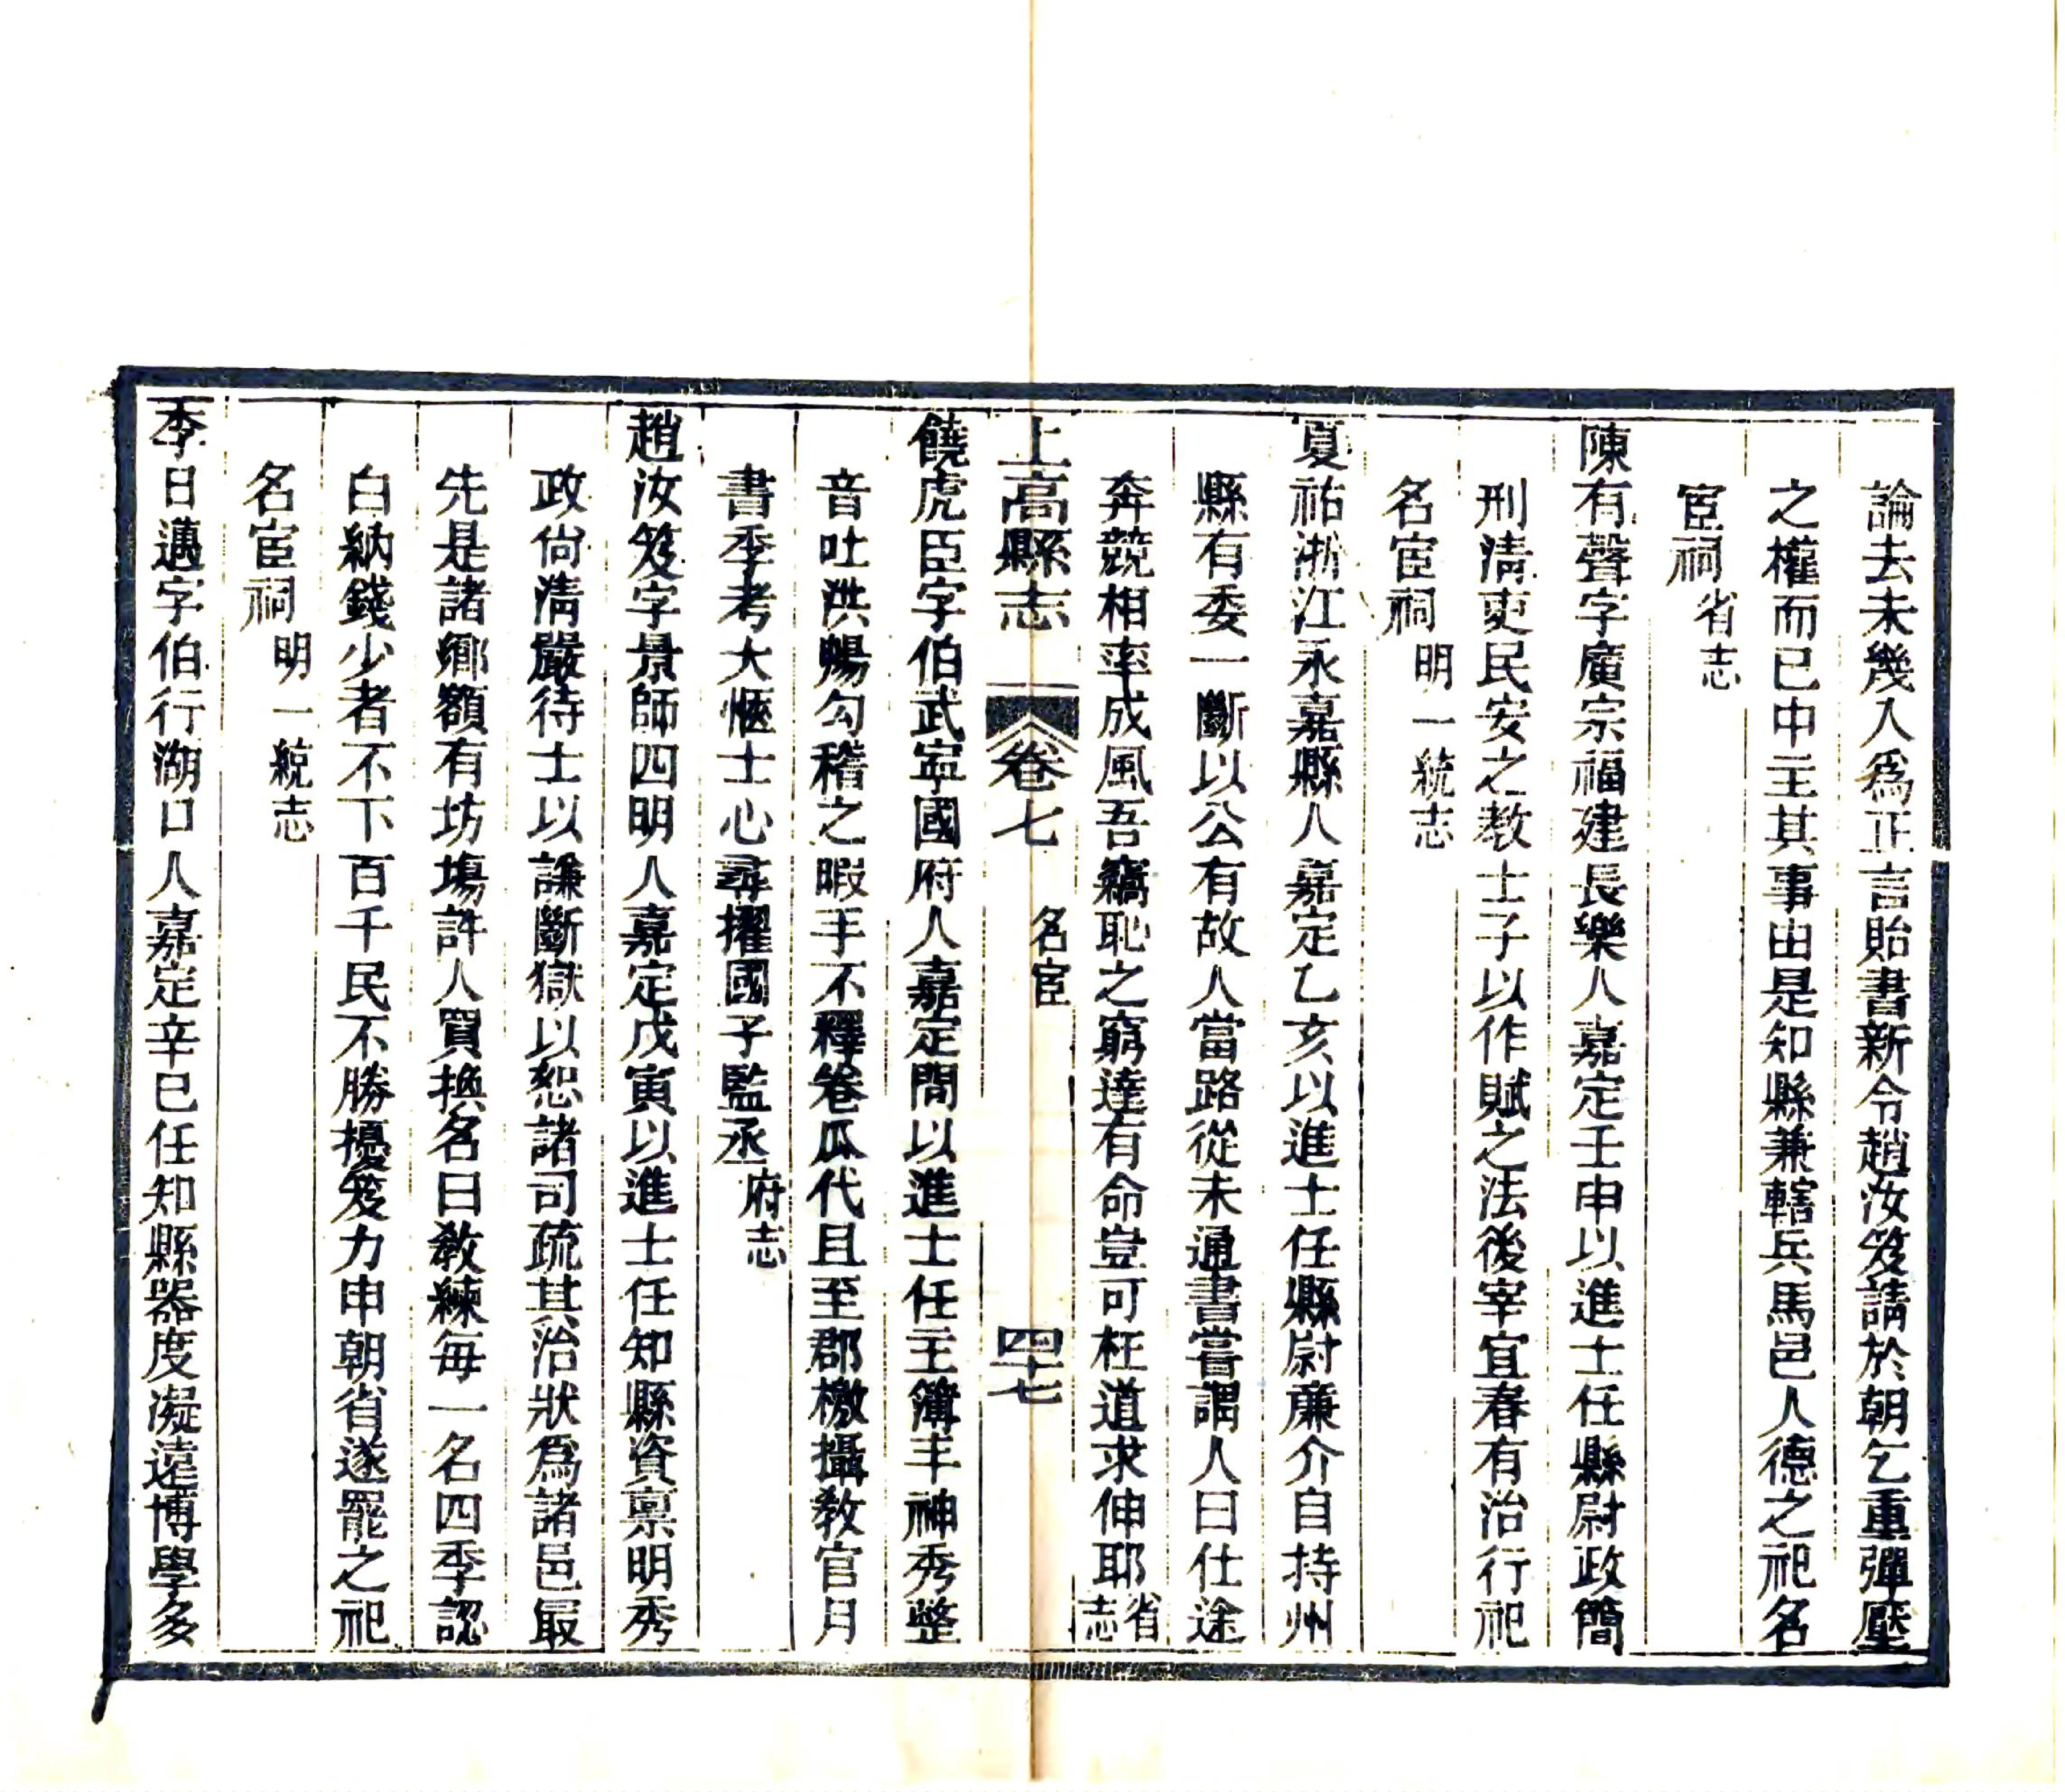 論去未幾入爲正言貽書新令趙汝笈請於朝乞重彈壓
之權而已中主其事由是知縣兼轄兵馬邑人德之祀名
宦祠省志
陳有聲字廣宗福建長樂人嘉定壬申以進士任縣尉政簡
刑清吏民安之教士子以作賦之法後宰宜春有治行祀
名宦祠明一統志
夏祐浙江永嘉縣人嘉定乙亥以進士任縣尉廉介自持州
縣有委一斷以公有故人當路從未通書嘗謂人曰仕途
奔競相率成風吾竊恥之窮達有命豈可枉道求伸耶省志
上高縣志 卷七 名宦 四十七
饒虎臣字伯武寧國府人嘉定間以進士任主簿丰神秀整
音吐洪暢勾稽之暇手不釋卷瓜代且至郡檄攝教官月
書季考大愜士心尋擢國子監丞府志
趙汝笈字景師四明人嘉定戊寅以進士任知縣資禀明秀
政尙清嚴待士以謙斷獄以恕諸司疏其治狀爲諸邑最
先是諸鄉額有坊塲許人買換名曰教練每一名四季認
白納錢少者不下百千民不勝擾笈力申朝省遂罷之祀
名宦祠明一統志
李日邁字伯行湖口人嘉定辛巳任知縣器度凝遠博學多